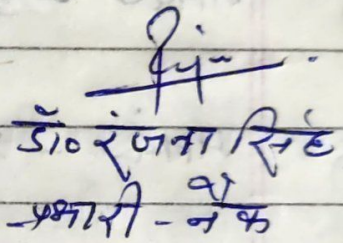 डॉ० रंजना सिंह
प्रभारी - नैक